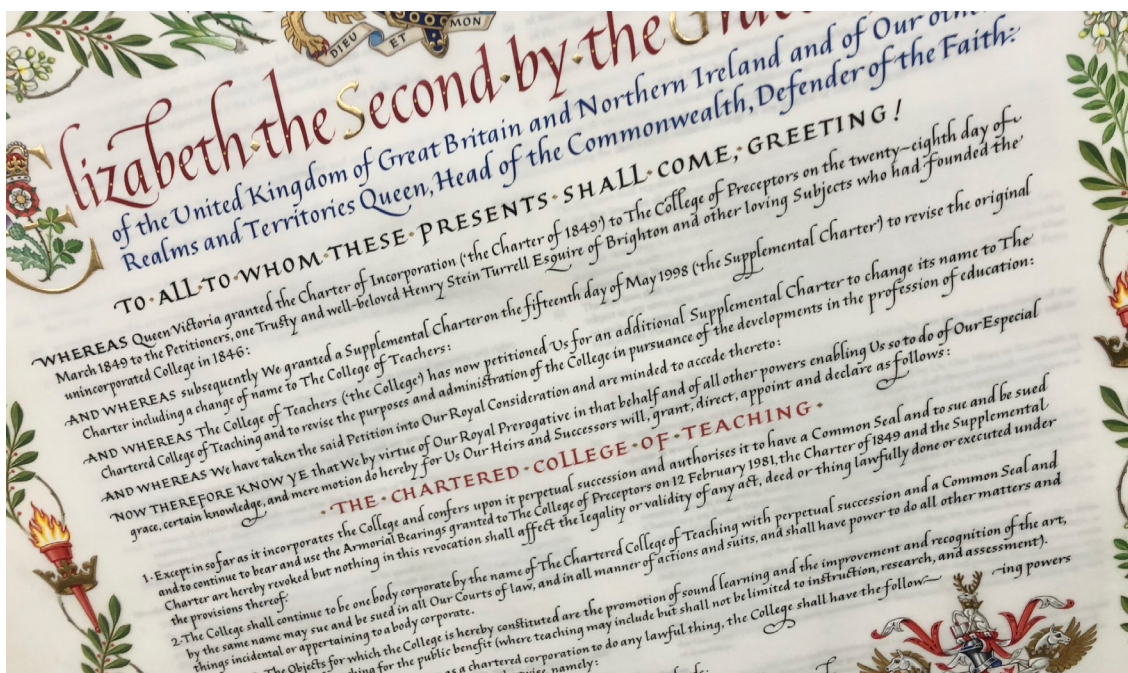 DIEU ET MON
Elizabeth·the·Second·by·the·Grace
of the United Kingdom of Great Britain and Northern Ireland and of Our other
Realms and Territories Queen, Head of the Commonwealth, Defender of the Faith:
TO·ALL·TO·WHOM·THESE·PRESENTS·SHALL·COME,·GREETING!
WHEREAS Queen Victoria granted the Charter of Incorporation ('the Charter of 1849') to The College of Preceptors on the twenty-eighth day of
March 1849 to the Petitioners, one Trusty and well-beloved Henry Stein Turrell Esquire of Brighton and other loving Subjects who had founded the
unincorporated College in 1846:
AND WHEREAS subsequently We granted a Supplemental Charter on the fifteenth day of May 1998 ('the Supplemental Charter') to revise the original
Charter including a change of name to The College of Teachers:
AND WHEREAS The College of Teachers ('the College') has now petitioned Us for an additional Supplemental Charter to change its name to The
Chartered College of Teaching and to revise the purposes and administration of the College in pursuance of the developments in the profession of education:
AND WHEREAS We have taken the said Petition into Our Royal Consideration and are minded to accede thereto:
NOW THEREFORE KNOW YE that We by virtue of Our Royal Prerogative in that behalf and of all other powers enabling Us so to do of Our Especial
grace, certain knowledge, and mere motion do hereby for Us Our Heirs and Successors will, grant, direct, appoint and declare as follows:
·THE·CHARTERED·COLLEGE·OF·TEACHING·
1·Except in so far as it incorporates the College and confers upon it perpetual succession and authorises it to have a Common Seal and to sue and be sued
and to continue to bear and use the Armorial Bearings granted to The College of Preceptors on 12 February 1981, the Charter of 1849 and the Supplemental
Charter are hereby revoked but nothing in this revocation shall affect the legality or validity of any act, deed or thing lawfully done or executed under
the provisions thereof:
2·The College shall continue to be one body corporate by the name of The Chartered College of Teaching with perpetual succession and a Common Seal and
by the same name may sue and be sued in all Our Courts of law, and in all manner of actions and suits, and shall have power to do all other matters and
things incidental or appertaining to a body corporate.
The Objects for which the College is hereby constituted are the promotion of sound learning and the improvement and recognition of the art,
for the public benefit (where teaching may include but shall not be limited to instruction, research, and assessment).
as a chartered corporation to do any lawful thing, the College shall have the follow- -ing powers
namely: